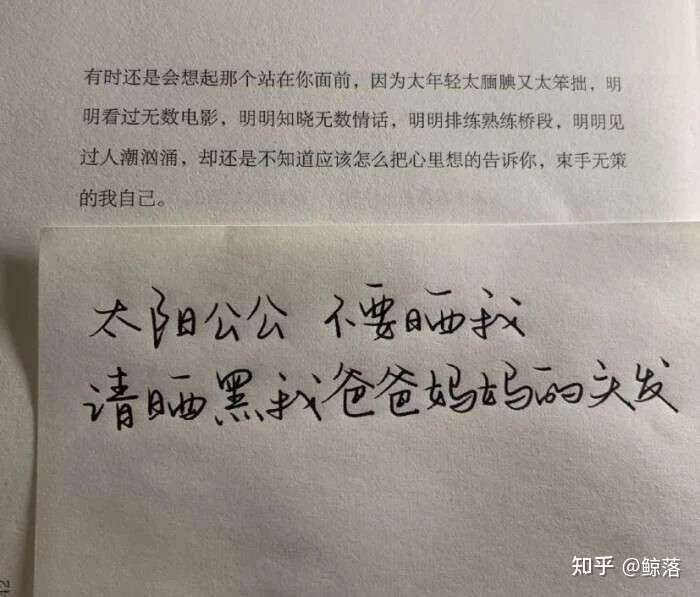 有时还是会想起那个站在你面前，因为太年轻太腼腆又太笨拙，明
明看过无数电影，明明知晓无数情话，明明排练熟练桥段，明明见
过人潮汹涌，却还是不知道应该怎么把心里想的告诉你，束手无策
的我自己。
太阳公公 不要晒我
请晒黑我爸爸妈妈的头发
42
知乎 @鲸落